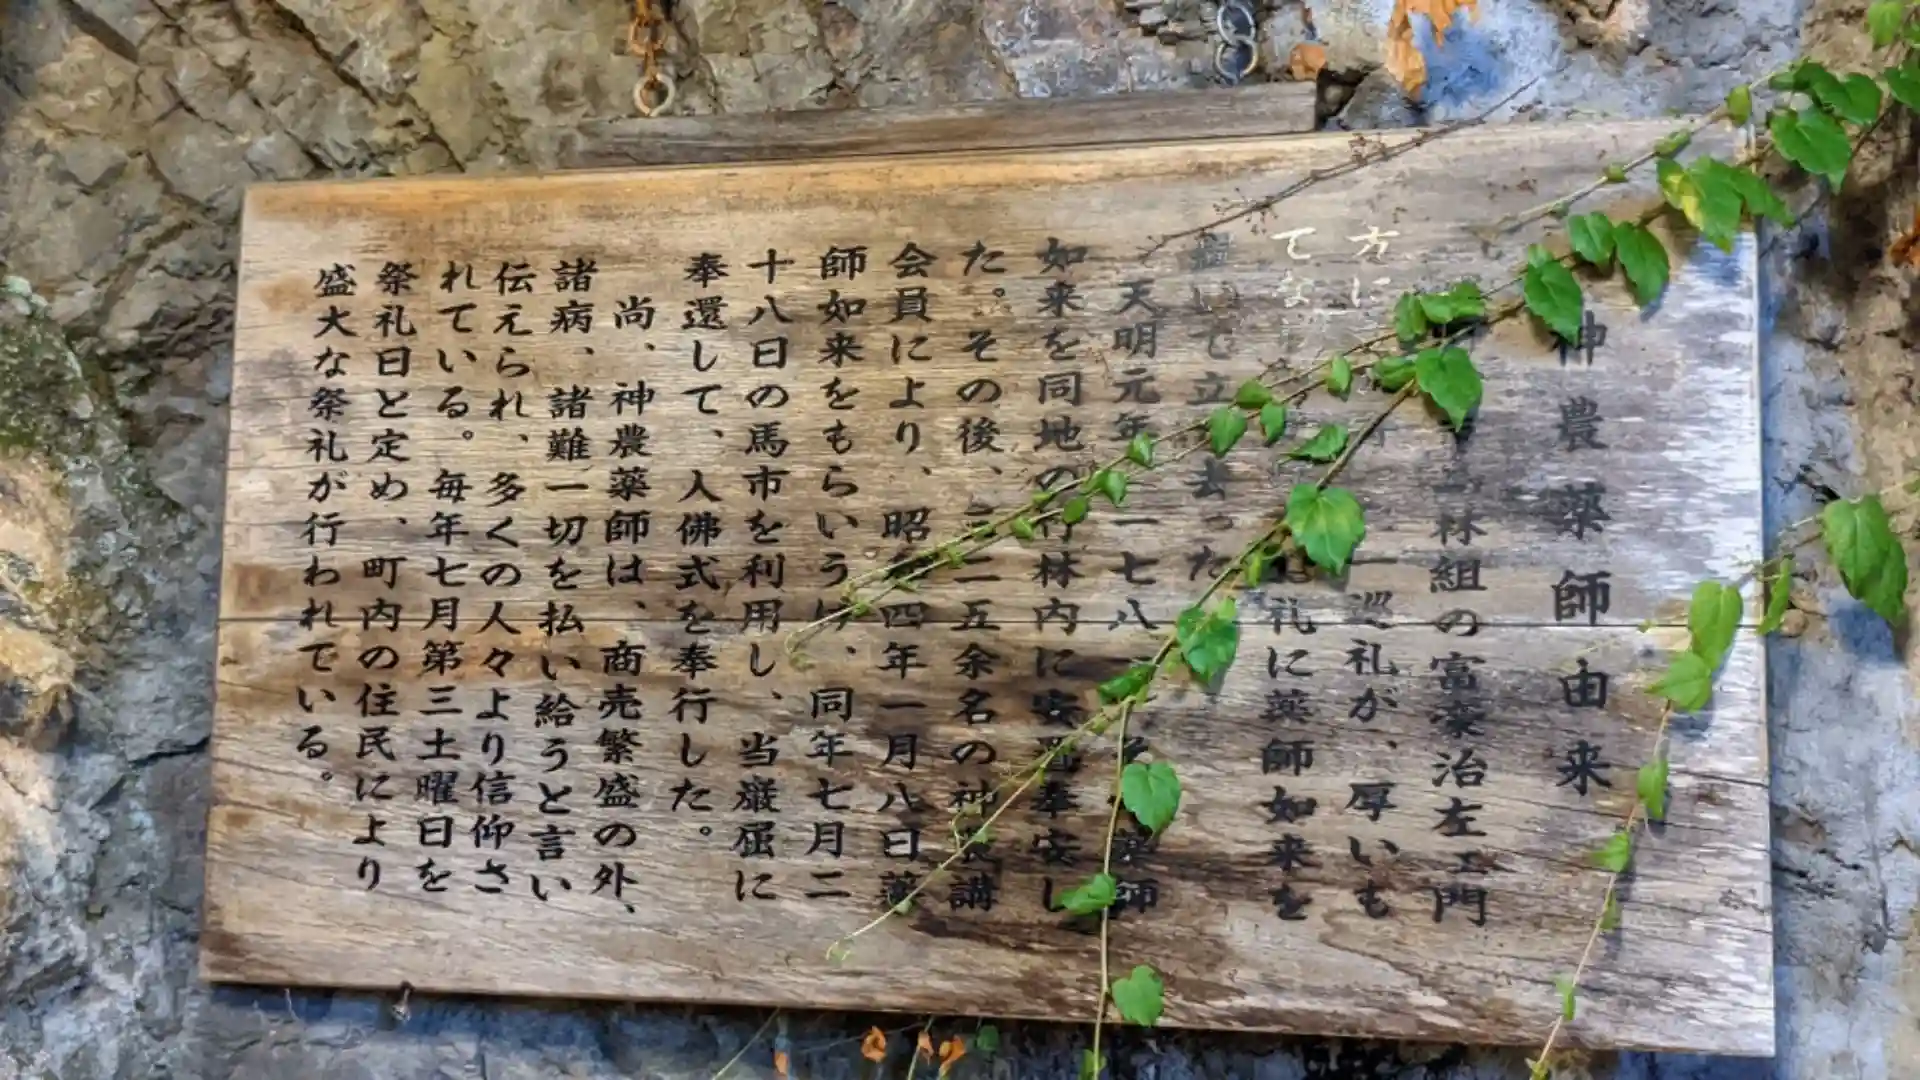 神農薬師由来
林組の富豪治左エ門
方に 一巡礼が、厚いも
てな 礼に薬師如来を
置いて立 去った
天明元年 一七八 そ 薬師
如来を同地の竹林内に安置奉安し
た。その後、 二五余名の神農講
会員により、昭和 四年一月八日薬
師如来をもらいうけ、同年七月二
十八日の馬市を利用し、当巌屈に
奉還して、人佛式を奉行した。
尚、神農薬師は、商売繁盛の外、
諸病、諸難一切を払い給うと言い
伝えられ、多くの人々より信仰さ
れている。毎年七月第三土曜日を
祭礼日と定め、町内の住民により
盛大な祭礼が行われている。